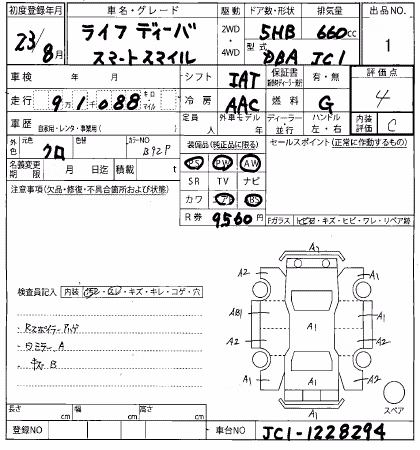 初度登録年月 車名・グレード 駆動 ドア数・形状 排気量 出品NO.
23/8月 ライフ ディーバ スマートスマイル 2WD・4WD 5HB 660cc 1
型式 DBA JC1
車検 年 月 シフト IAT 保証書 有・無 評価点 4
走行 9万1千088 キロ マイル 冷房 AAC 燃料 G
車歴 自家用・レンタ・事業用( ) 定員 人 外車モデル 年 ディーラー・並行 ハンドル 左・右 内装評価 C
外色 元色 クロ 色替 カラーNO B92P 装備品(純正品に限る) セールスポイント(正常に作動するもの)
名義変更期限 月 日迄 積載 t PS PW AW
注意事項(欠品・修復・不具合箇所および状態) SR TV ナビ
カワ エアB ABS
R券 9560円 Fガラス
検査員記入 内装
ウミラー A
キズ B
A1
A2 A2
A1
AB1 A1
A1
A2 A2
A1 A2
A1
スペア
長さ cm 幅 cm 高さ cm
登録NO 車台NO JC1-1228294